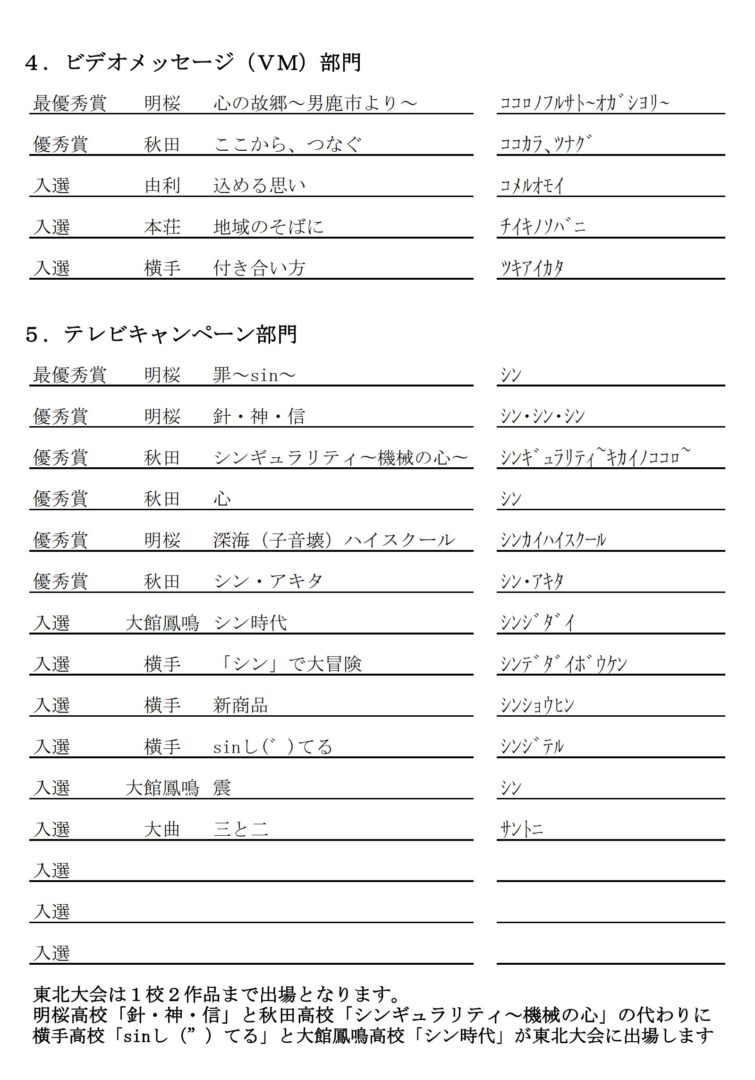 ４．ビデオメッセージ（ＶＭ）部門
最優秀賞 明桜 心の故郷～男鹿市より～ ｺｺﾛﾉﾌﾙｻﾄ~ｵｶﾞｼﾖﾘ~
優秀賞 秋田 ここから、つなぐ ｺｺｶﾗ､ﾂﾅｸﾞ
入選 由利 込める思い ｺﾒﾙｵﾓｲ
入選 本荘 地域のそばに ﾁｲｷﾉｿﾊﾞﾆ
入選 横手 付き合い方 ﾂｷｱｲｶﾀ
５．テレビキャンペーン部門
最優秀賞 明桜 罪～sin～ ｼﾝ
優秀賞 明桜 針・神・信 ｼﾝ･ｼﾝ･ｼﾝ
優秀賞 秋田 シンギュラリティ～機械の心～ ｼﾝｷﾞｭﾗﾘﾃｨ~ｷｶｲﾉｺｺﾛ~
優秀賞 秋田 心 ｼﾝ
優秀賞 明桜 深海（子音壊）ハイスクール ｼﾝｶｲﾊｲｽｸｰﾙ
優秀賞 秋田 シン・アキタ ｼﾝ･ｱｷﾀ
入選 大館鳳鳴 シン時代 ｼﾝｼﾞﾀﾞｲ
入選 横手 「シン」で大冒険 ｼﾝﾃﾞﾀﾞｲﾎﾞｳｹﾝ
入選 横手 新商品 ｼﾝｼｮｳﾋﾝ
入選 横手 sinし(゛)てる ｼﾝｼﾞﾃﾙ
入選 大館鳳鳴 震 ｼﾝ
入選 大曲 三と二 ｻﾝﾄﾆ
入選
入選
入選
東北大会は１校２作品まで出場となります。
明桜高校「針・神・信」と秋田高校「シンギュラリティ～機械の心」の代わりに
横手高校「sinし（”）てる」と大館鳳鳴高校「シン時代」が東北大会に出場します